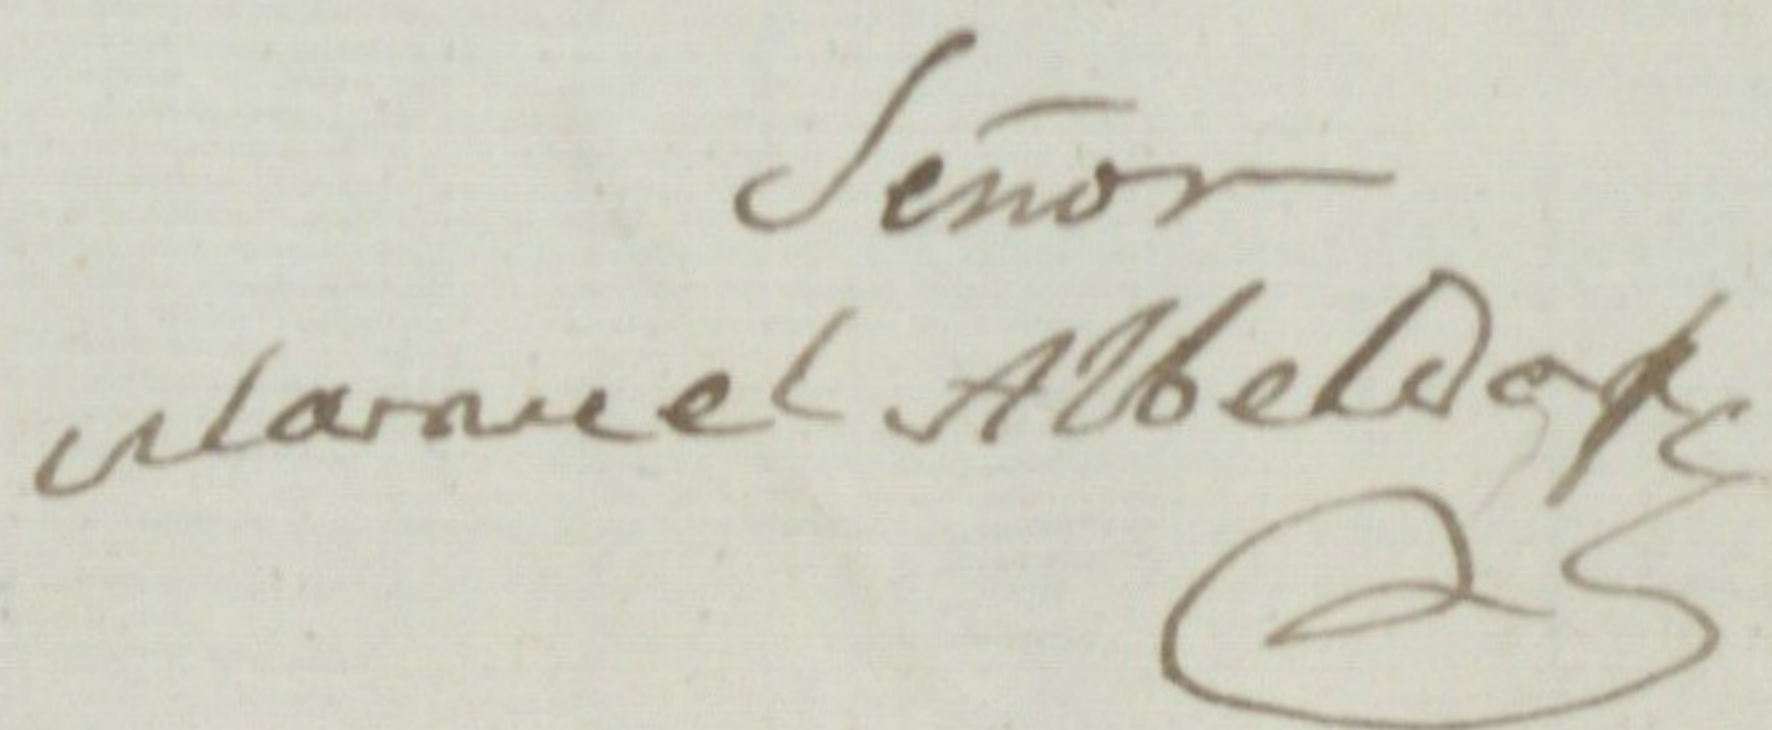 Señor
Manuel Albelda